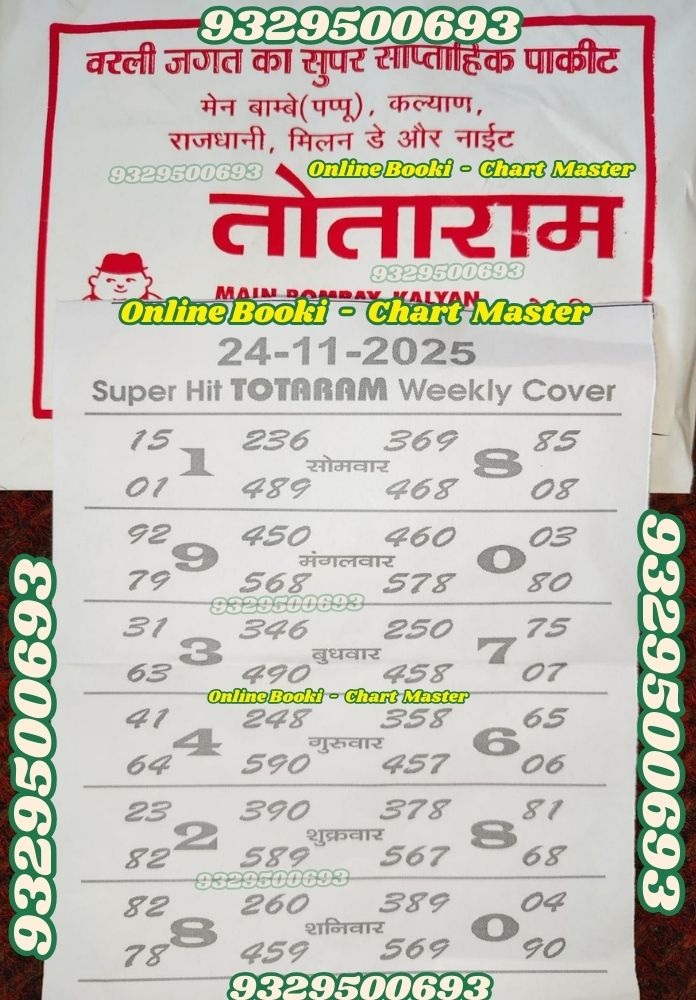 9329500693
वरली जगत का सुपर साप्ताहिक पाकीट
मेन बाम्बे(पप्पू), कल्याण,
राजधानी, मिलन डे और नाईट
9329500693 Online Booki - Chart Master
तोताराम
9329500693
MAIN BOMBAY KALYAN
Online Booki - Chart Master
24-11-2025
Super Hit TOTARAM Weekly Cover
15 236 369 85
1 सोमवार 8
01 489 468 08
92 450 460 03
9 मंगलवार 0
79 568 578 80
9329500693
31 346 250 75
3 बुधवार 7
63 490 458 07
Online Booki - Chart Master
41 248 358 65
4 गुरुवार 6
64 590 457 06
23 390 378 81
2 शुक्रवार 8
82 589 567 68
9329500693
82 260 389 04
8 शनिवार 0
78 459 569 90
9329500693
9329500693
9329500693